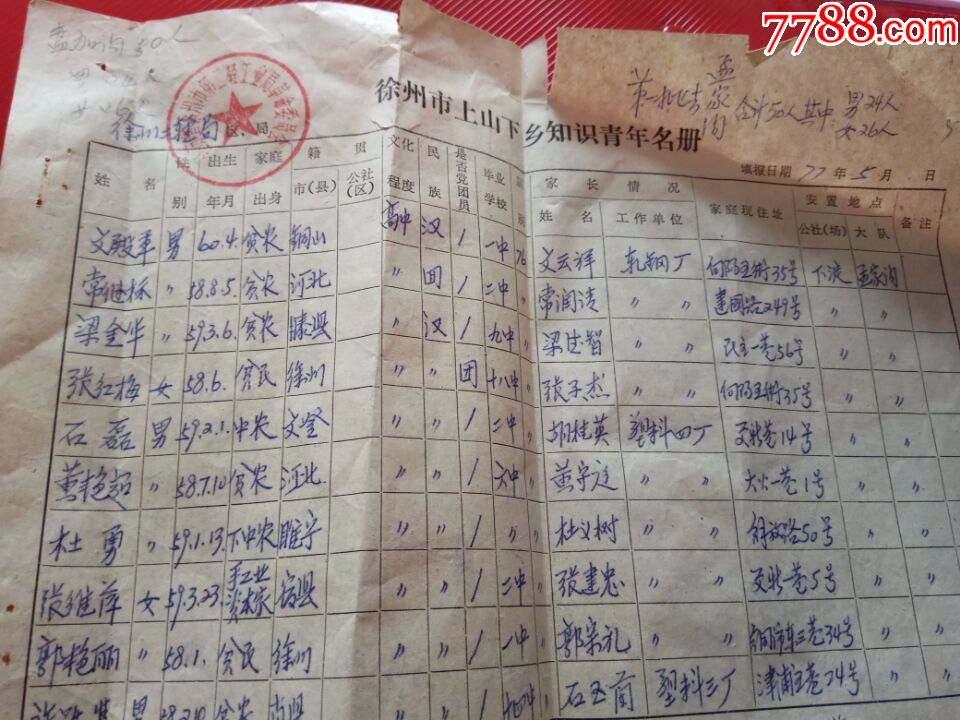 7788.com
中国收藏热线
孟家沟50人
男24人
女26人
第一批去孟家沟 合计50人其中 男24人
女26人
徐州市上山下乡知识青年名册
徐州二轻局 区、局
填报日期 77 年 5 月 日
姓名 性别 出生年月 家庭出身 籍贯 市(县) 公社(区) 文化程度 民族 是否党团员 毕业学校 家长情况 姓名 工作单位 家庭现住址 安置地点 公社(场) 大队 备注
文殿军 男 60.4. 贫农 铜山 高中 汉 / 一中 76 文云祥 轧钢厂 35号 下淀 孟家沟
常继标 〃 58.8.5. 贫农 河北 〃 回 / 二中 〃 常润清 〃 〃 建国路249号 〃 〃
梁金华 〃 59.3.6. 贫农 滕县 〃 汉 / 九中 〃 梁法智 〃 〃 民主一巷56号 〃 〃
张红梅 女 58.6. 贫民 徐州 〃 〃 团 十八中 〃 张子杰 〃 〃 35号 〃 〃
石磊 男 59.2.1. 中农 文登 〃 〃 / 二中 〃 胡桂英 塑料四厂 14号 〃 〃
董艳 〃 58.7.10 贫农 河北 〃 〃 / 六中 〃 董守廷 〃 〃 大火一巷1号 〃 〃
杜勇 〃 59.1.13. 下中农 睢宁 〃 〃 / 〃 〃 杜义树 〃 〃 解放路50号 〃 〃
张维萍 女 59.3.23. 手工业资本家 宿县 〃 〃 / 二中 〃 张建忠 〃 〃 5号 〃 〃
郭艳丽 〃 58.1. 贫民 徐州 〃 〃 / 一中 〃 郭宗礼 〃 〃 三巷34号 〃 〃
男 58.2.10. 贫农 〃 〃 / 石玉兰 塑料三厂 津浦五巷24号 〃 〃